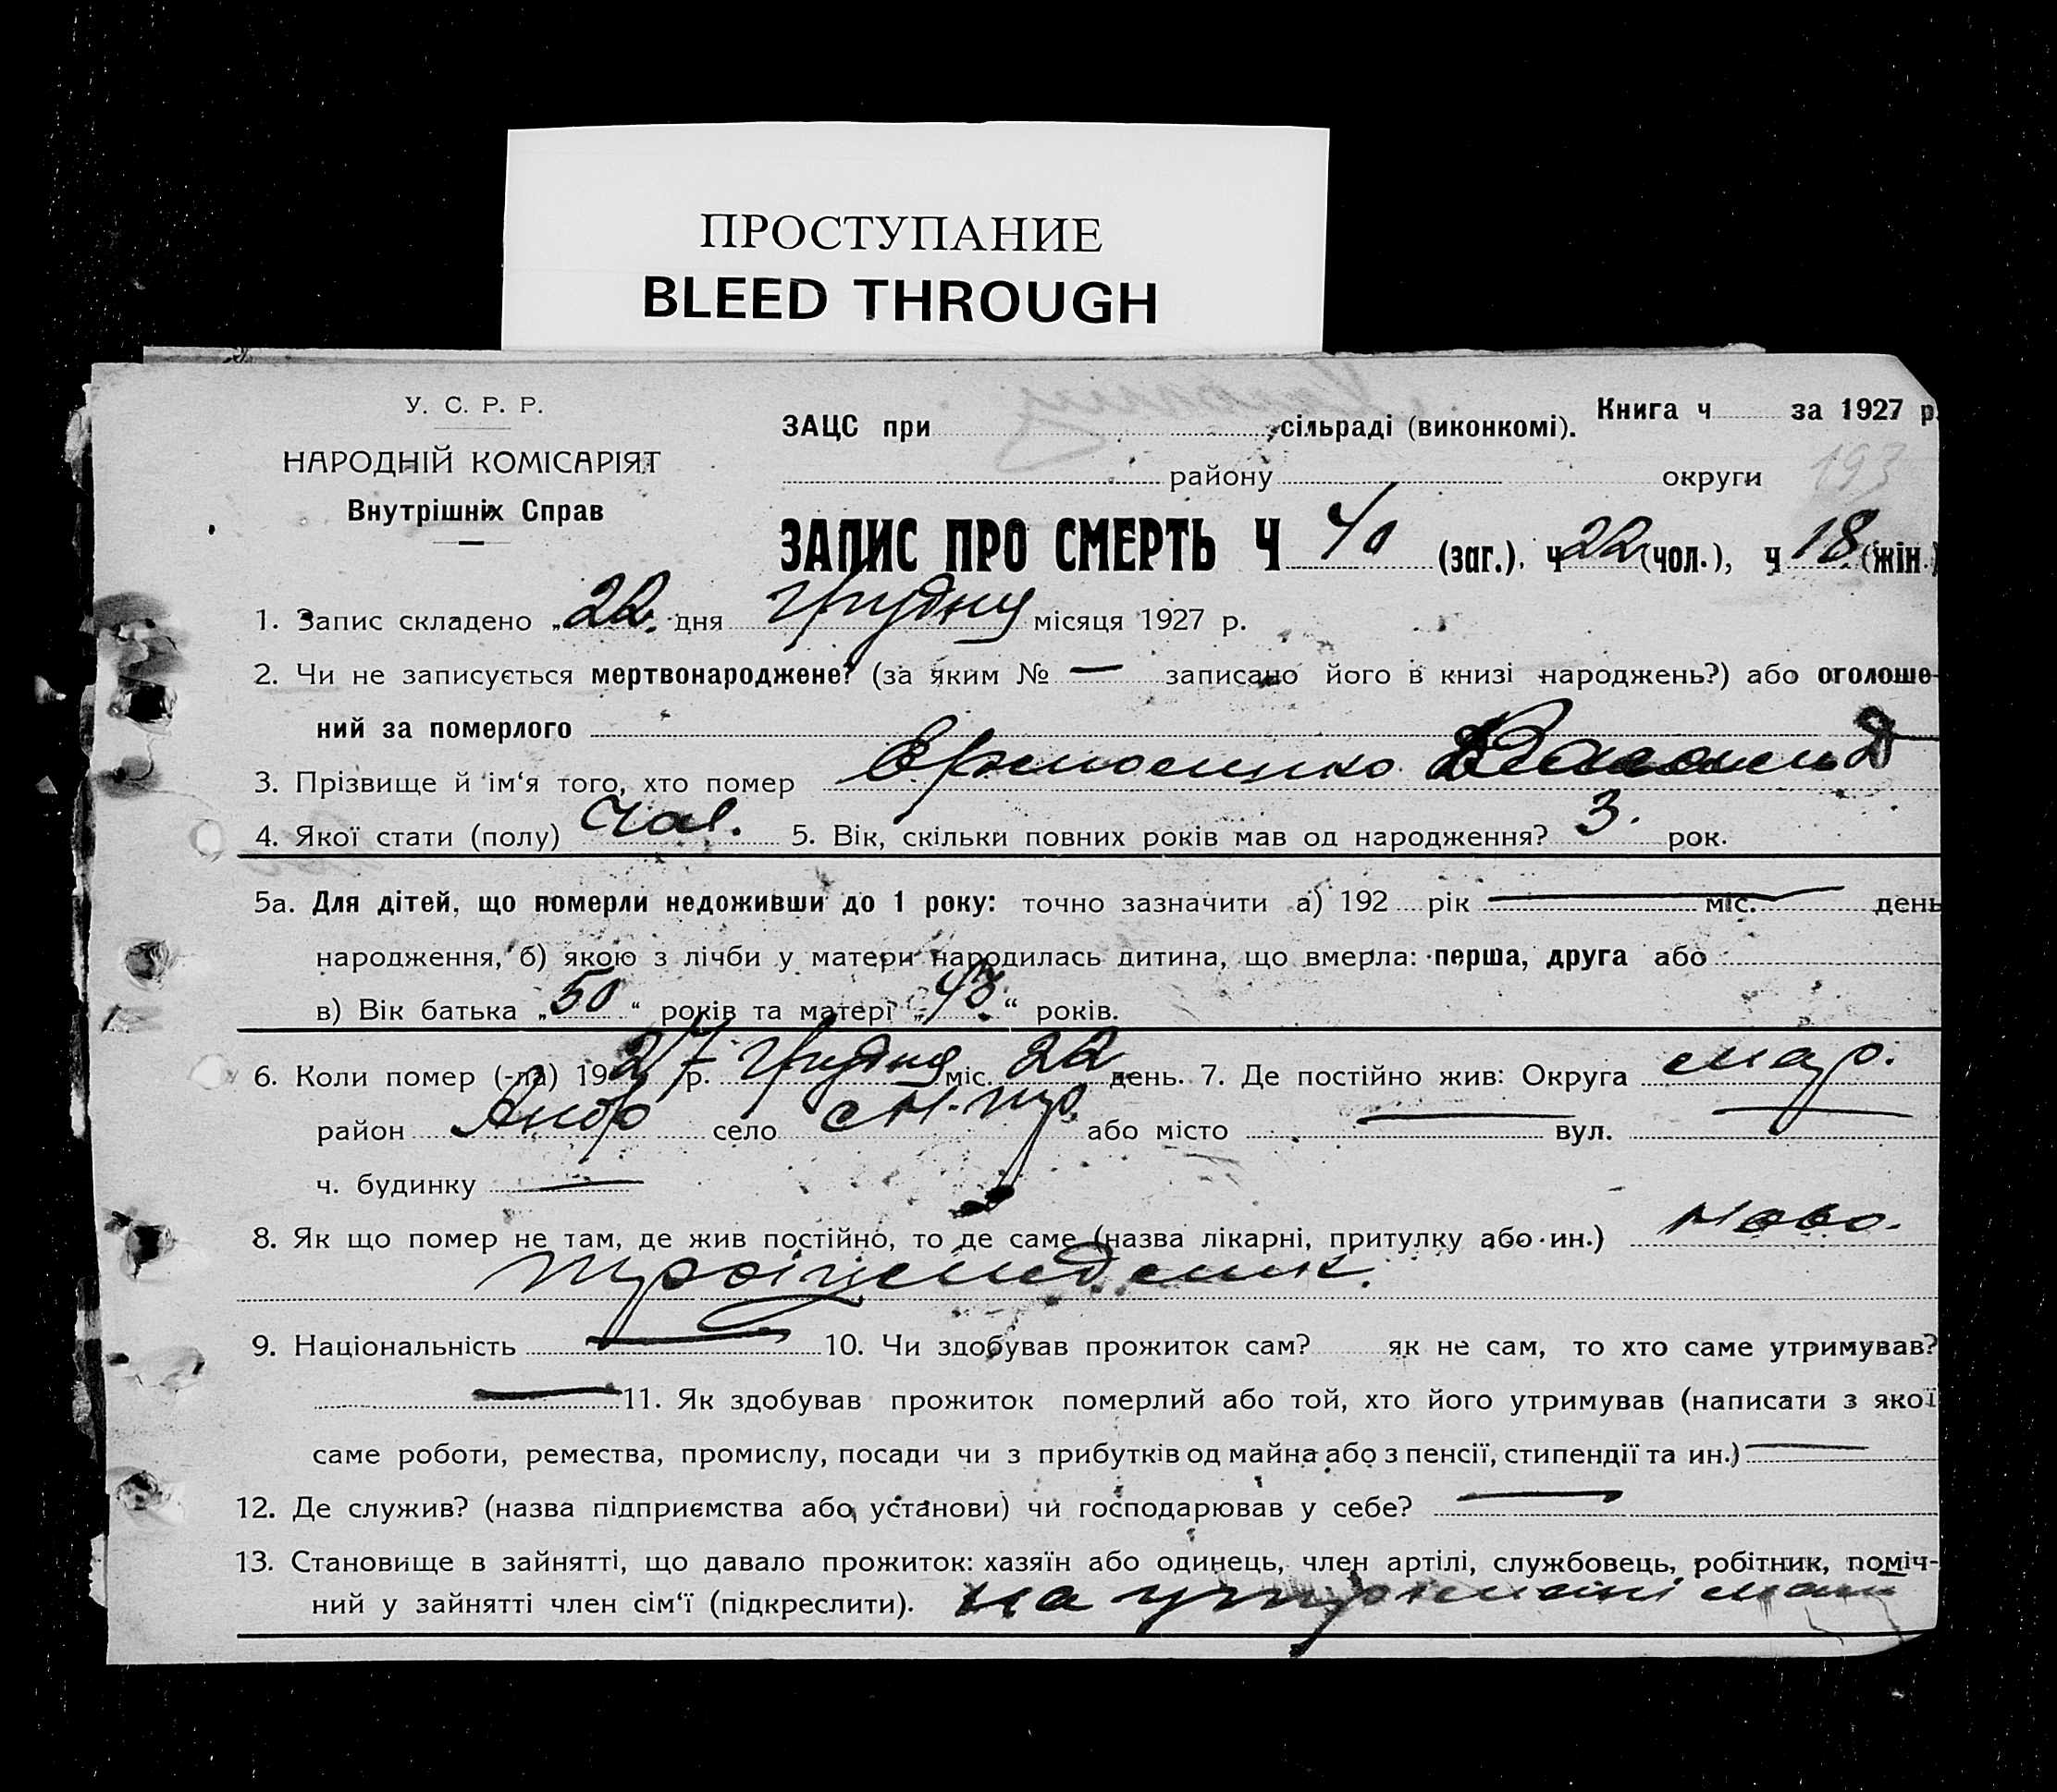 ПРОСТУПАНИЕ
BLEED THROUGH
У. С. Р. Р.
НАРОДНІЙ КОМІСАРІЯТ
Внутрішніх Справ
Книга ч за 1927 р.
ЗАЦС при сільраді (виконкомі).
району округи
193
ЗАПИС ПРО СМЕРТЬ Ч 40 (заг.). ч 22 (чол.), ч 18 (жін.)
1. Запис складено „22" дня грудня місяця 1927 р.
2. Чи не записується мертвонароджене? (за яким № — записано його в книзі народжень?) або оголоше-
ний за померлого
3. Прізвище й ім‘я того, хто помер
4. Якої стати (полу) Чол. 5. Вік, скільки повних років мав од народження? 3. рок.
5а. Для дітей, що померли недоживши до 1 року: точно зазначити а) 192 рік міс. день
народження, б) якою з лічби у матери народилась дитина, що вмерла: перша, друга або
в) Вік батька „50“ років та матері „43“ років.
6. Коли помер (-ла) 1927 р. грудня міс. 22 день. 7. Де постійно жив: Округа мар.
район село або місто — вул. —
ч. будинку —
8. Як що помер не там, де жив постійно, то де саме (назва лікарні, притулку або ин.) Ново.
9. Національність — 10. Чи здобував прожиток сам? як не сам, то хто саме утримував?
— 11. Як здобував прожиток померлий або той, хто його утримував (написати з якої
саме роботи, ремества, промислу, посади чи з прибутків од майна або з пенсії, стипендії та ин.) —
12. Де служив? (назва підприємства або установи) чи господарював у себе? —
13. Становище в зайнятті, що давало прожиток: хазяїн або одинець, член артілі, службовець, робітник, поміч-
ний у зайнятті член сім‘ї (підкреслити). на